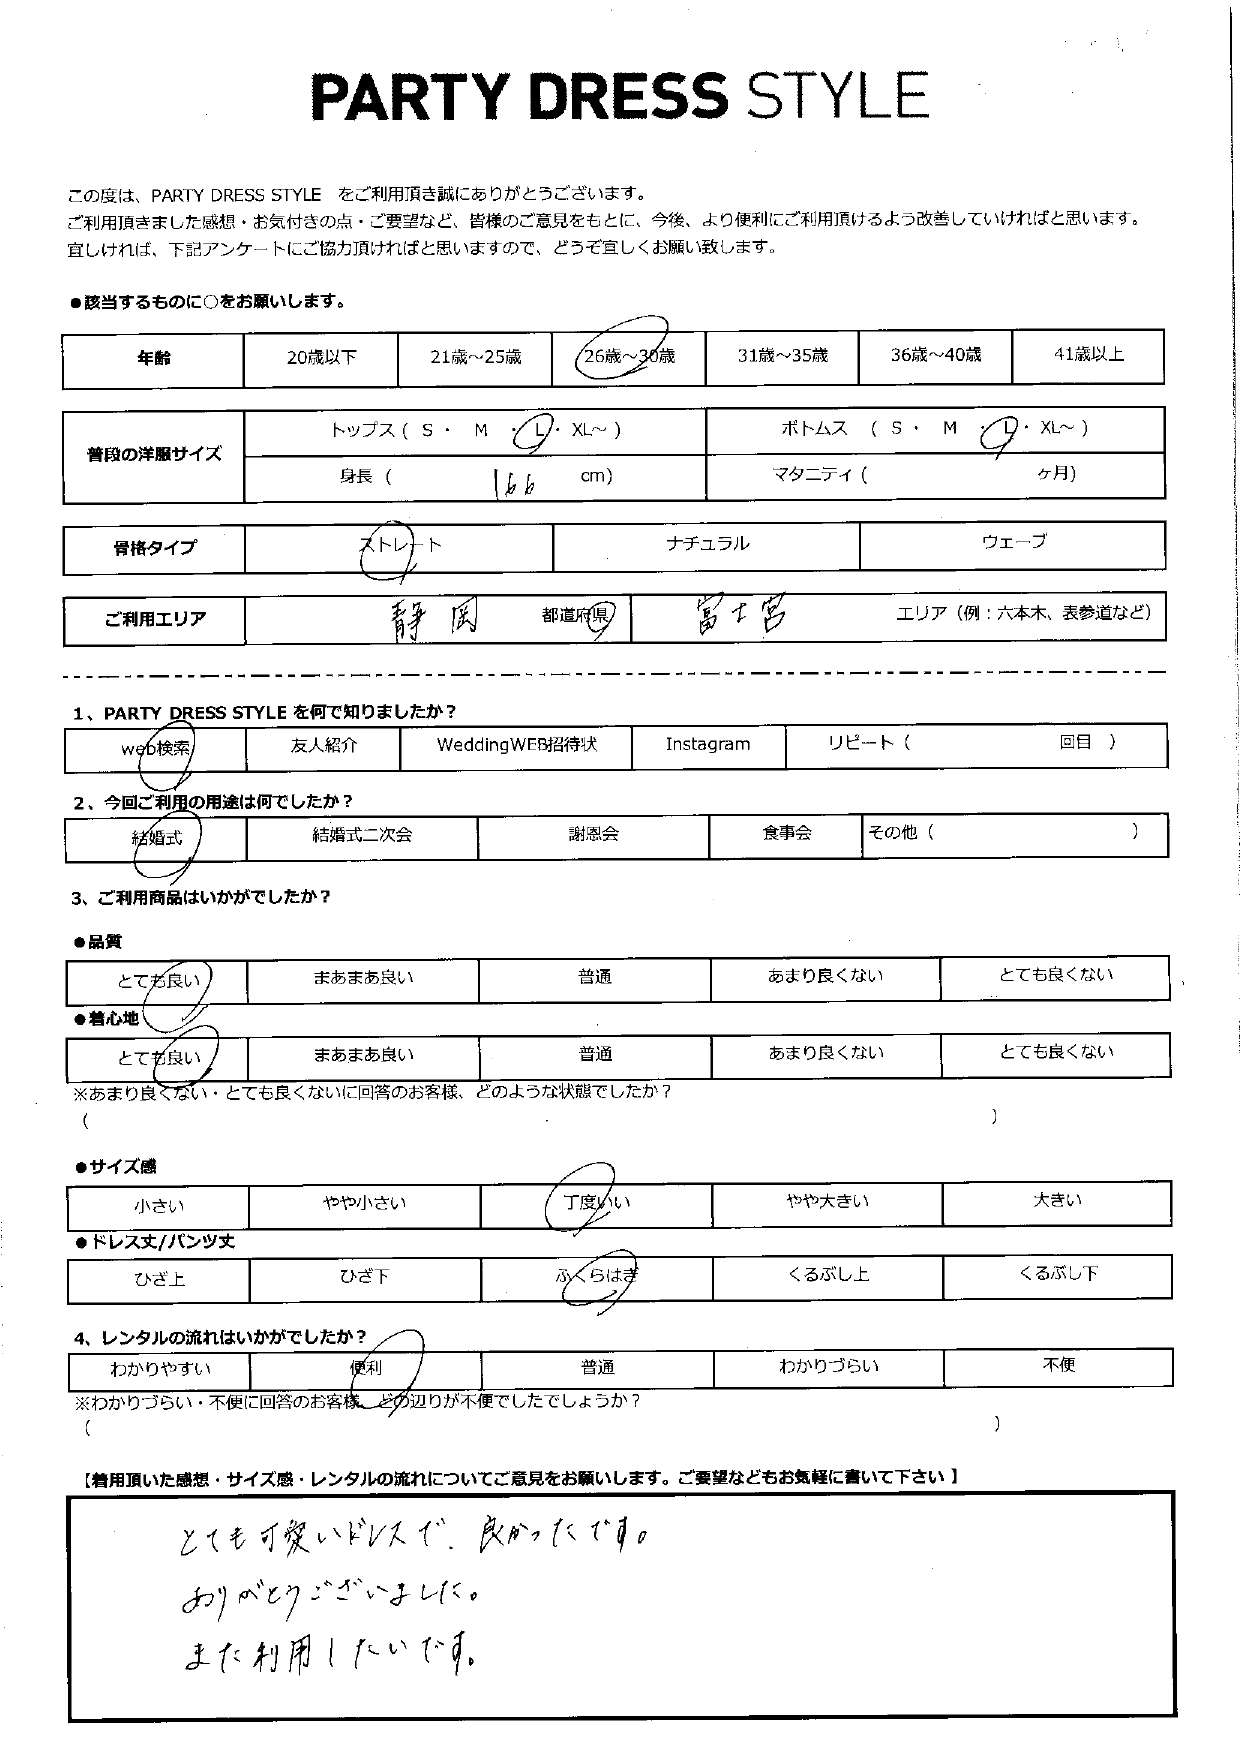 PARTY DRESS STYLE
この度は、PARTY DRESS STYLE をご利用頂き誠にありがとうございます。
ご利用頂きました感想・お気付きの点・ご要望など、皆様のご意見をもとに、今後、より便利にご利用頂けるよう改善していければと思います。
宜しければ、下記アンケートにご協力頂ければと思いますので、どうぞ宜しくお願い致します。
●該当するものに○をお願いします。
年齢 20歳以下 21歳～25歳 26歳～30歳 31歳～35歳 36歳～40歳 41歳以上
普段の洋服サイズ トップス ( S ・ M ・ L ・ XL～ ) ボトムス ( S ・ M ・ L ・ XL～ )
身長 ( 166 cm) マタニティ ( ヶ月)
骨格タイプ ストレート ナチュラル ウェーブ
ご利用エリア 静岡 都道府県 富士宮 エリア（例：六本木、表参道など）
1、PARTY DRESS STYLE を何で知りましたか？
web検索 友人紹介 WeddingWEB招待状 Instagram リピート ( 回目 )
2、今回ご利用の用途は何でしたか？
結婚式 結婚式二次会 謝恩会 食事会 その他 ( )
3、ご利用商品はいかがでしたか？
●品質
とても良い まあまあ良い 普通 あまり良くない とても良くない
●着心地
とても良い まあまあ良い 普通 あまり良くない とても良くない
※あまり良くない・とても良くないに回答のお客様、どのような状態でしたか？
( )
●サイズ感
小さい やや小さい 丁度いい やや大きい 大きい
●ドレス丈/パンツ丈
ひざ上 ひざ下 ふくらはぎ くるぶし上 くるぶし下
4、レンタルの流れはいかがでしたか？
わかりやすい 便利 普通 わかりづらい 不便
※わかりづらい・不便に回答のお客様、どの辺りが不便でしたでしょうか？
( )
【着用頂いた感想・サイズ感・レンタルの流れについてご意見をお願いします。ご要望などもお気軽に書いて下さい】
とても可愛いドレスで、良かったです。
ありがとうございました。
また利用したいです。